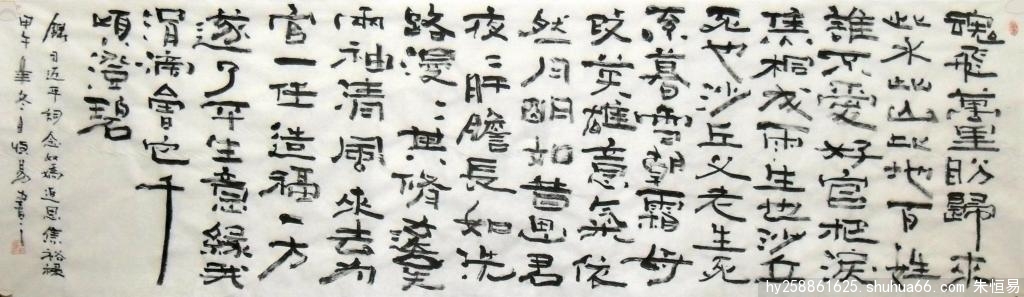 魂飛萬里盼歸來
此水此山此地百姓
誰不愛好官把淚
焦桐成雨生也沙丘
死也沙丘父老生死
系暮雪朝霜毋
改英雄意氣依
然月明如昔思君
夜〻肝膽長如洗
路漫〻其修遠矣
兩袖清風來去為
官一任造福一方
遂了平生意綠我
涓滴會它千
頃澄碧
錄习近平詞念奴嬌追思焦裕祿
甲午年冬月恒易書
hy258861625.shuhua66.com 朱恒易